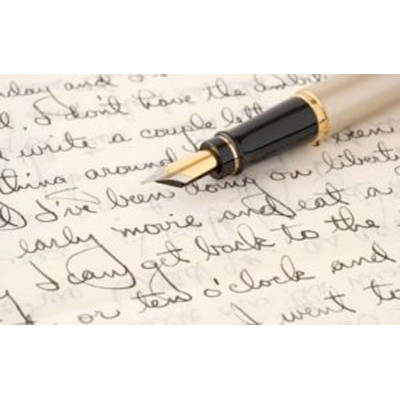 day and
I don't have the ambit
write a couple left
thing around
I've been doing on libert
early movie and eat a
I can get back to the
or ten o'clock and
I went to